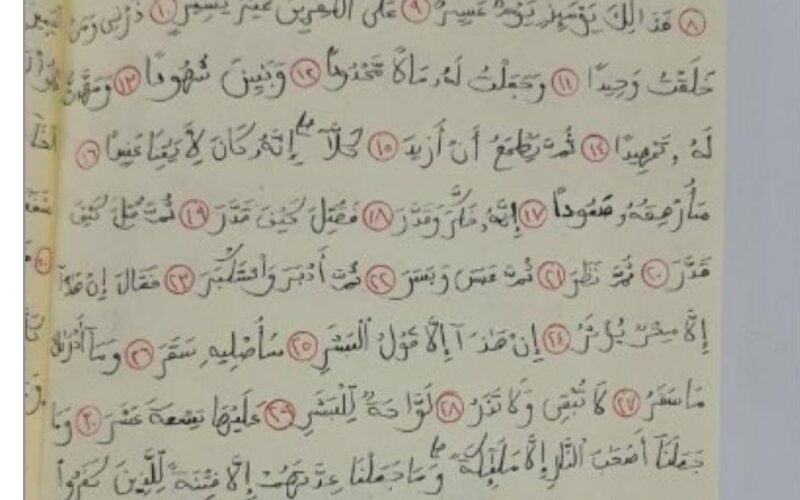 ٨ فَذَٰلِكَ يَوْمَئِذٍ يَوْمٌ عَسِيرٌ ٩ عَلَى الْكَٰفِرِينَ غَيْرُ يَسِيرٍ ١٠ ذَرْنِى وَمَنْ
خَلَقْتُ وَحِيدًا ١١ وَجَعَلْتُ لَهُۥ مَالًا مَّمْدُودًا ١٢ وَبَنِينَ شُهُودًا ١٣ وَمَهَّدتُّ
لَهُۥ تَمْهِيدًا ١٤ ثُمَّ يَطْمَعُ أَنْ أَزِيدَ ١٥ كَلَّآ ۖ إِنَّهُۥ كَانَ لِءَايَٰتِنَا عَنِيدًا ١٦
سَأُرْهِقُهُۥ صَعُودًا ١٧ إِنَّهُۥ فَكَّرَ وَقَدَّرَ ١٨ فَقُتِلَ كَيْفَ قَدَّرَ ١٩ ثُمَّ قُتِلَ كَيْفَ
قَدَّرَ ٢٠ ثُمَّ نَظَرَ ٢١ ثُمَّ عَبَسَ وَبَسَرَ ٢٢ ثُمَّ أَدْبَرَ وَاسْتَكْبَرَ ٢٣ فَقَالَ إِنْ هَٰذَآ
إِلَّا سِحْرٌ يُؤْثَرُ ٢٤ إِنْ هَٰذَآ إِلَّا قَوْلُ الْبَشَرِ ٢٥ سَأُصْلِيهِ سَقَرَ ٢٦ وَمَآ أَدْرَىٰكَ
مَا سَقَرُ ٢٧ لَا تُبْقِى وَلَا تَذَرُ ٢٨ لَوَّاحَةٌ لِّلْبَشَرِ ٢٩ عَلَيْهَا تِسْعَةَ عَشَرَ ٣٠ وَمَا
جَعَلْنَآ أَصْحَٰبَ النَّارِ إِلَّا مَلَٰٓئِكَةً ۖ وَمَا جَعَلْنَا عِدَّتَهُمْ إِلَّا فِتْنَةً لِّلَّذِينَ كَفَرُوا۟